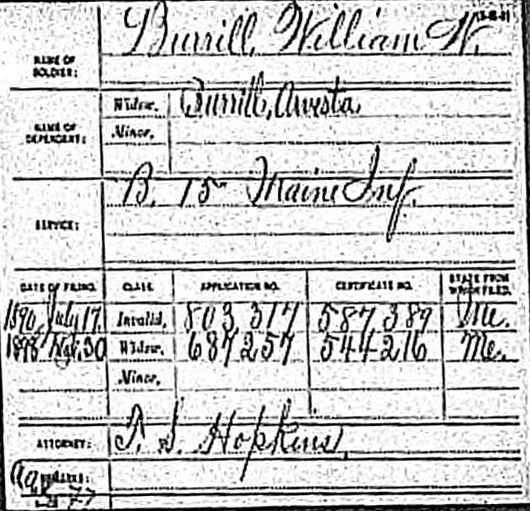 Burrill, William W.
NAME OF SOLDIER:
NAME OF DEPENDENT:
Widow, Burrill, Avesta
Minor,
SERVICE:
B. 15 Maine Inf.
DATE OF FILING. CLASS. APPLICATION NO. CERTIFICATE NO. STATE FROM WHICH FILED.
1890 July 17. Invalid, 803 317 587 389 Me.
1898 30 Widow, 687 257 544 216 Me.
Minor,
ATTORNEY: T. S. Hopkins